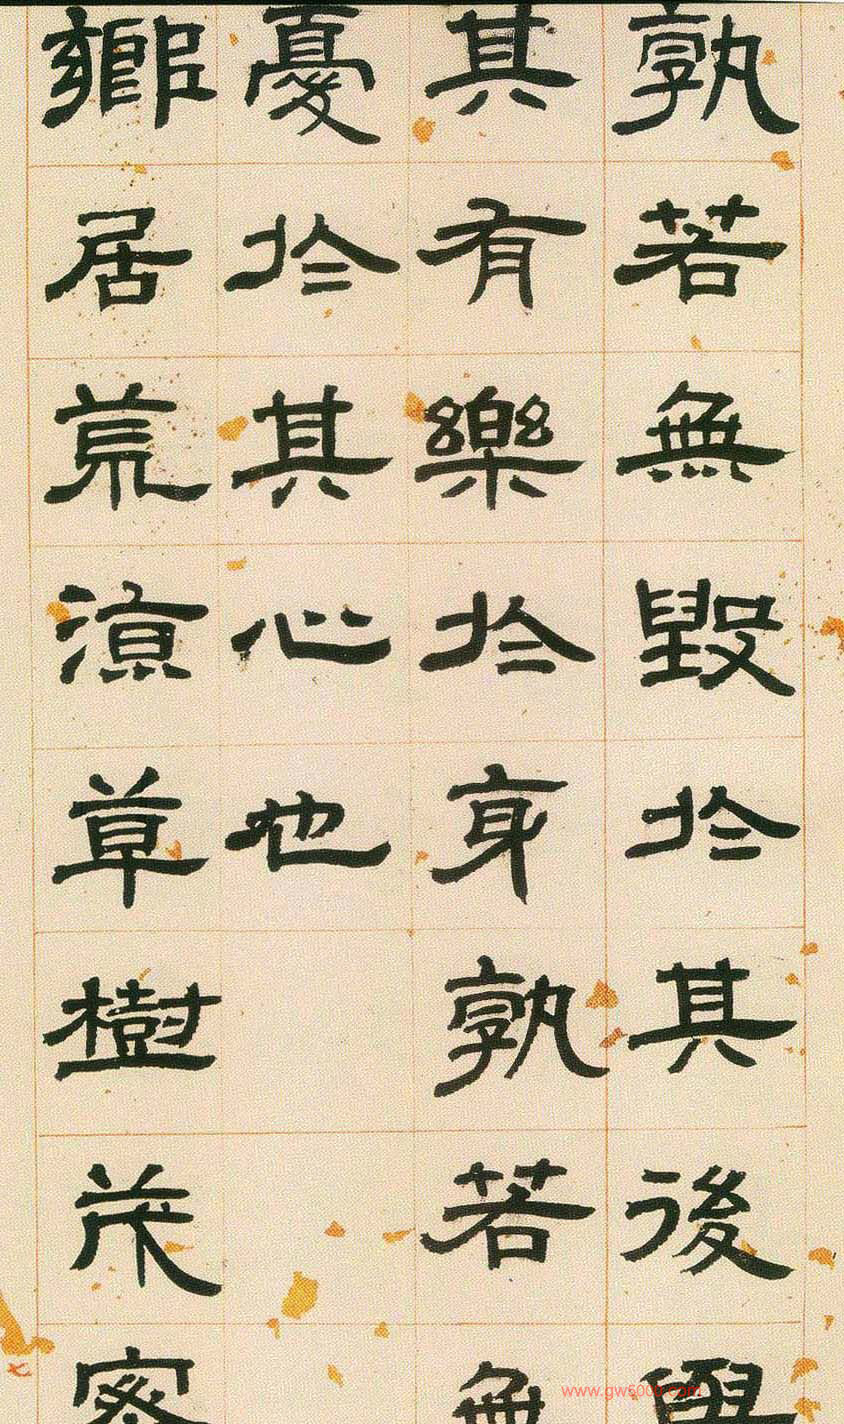 孰若無毀於其後與
其有樂於身孰若無
憂於其心也
鄉居荒涼草樹茂密
www.gw5000.com